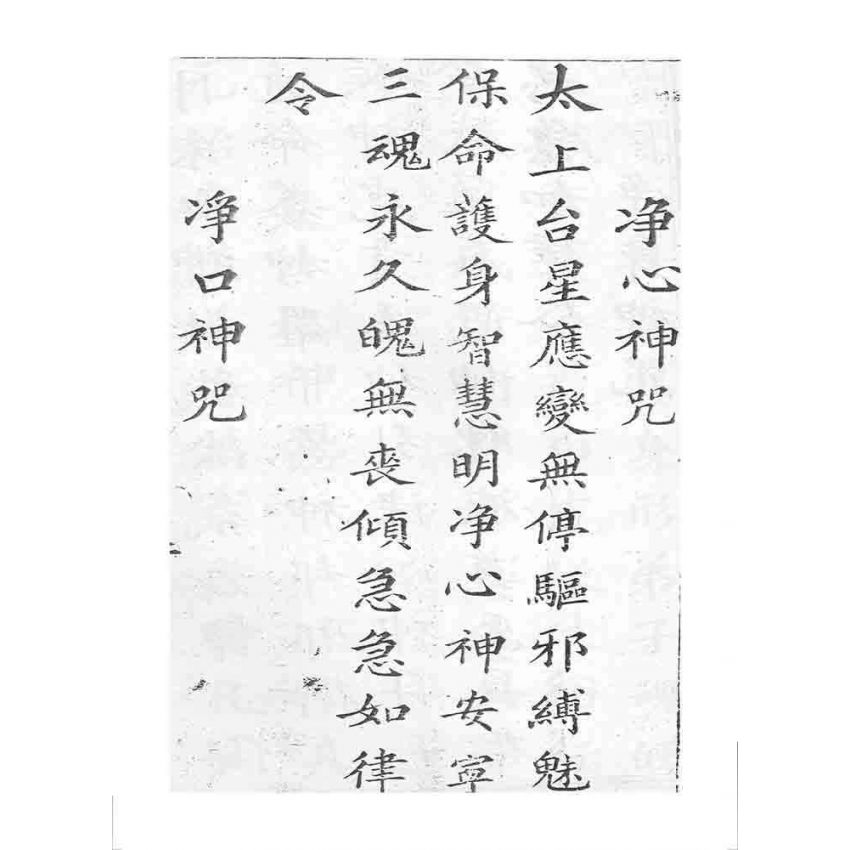 净心神咒
太上台星應變無停驅邪縛魅
保命護身智慧明净心神安寧
三魂永久魄無喪傾急急如律
令
凈口神咒